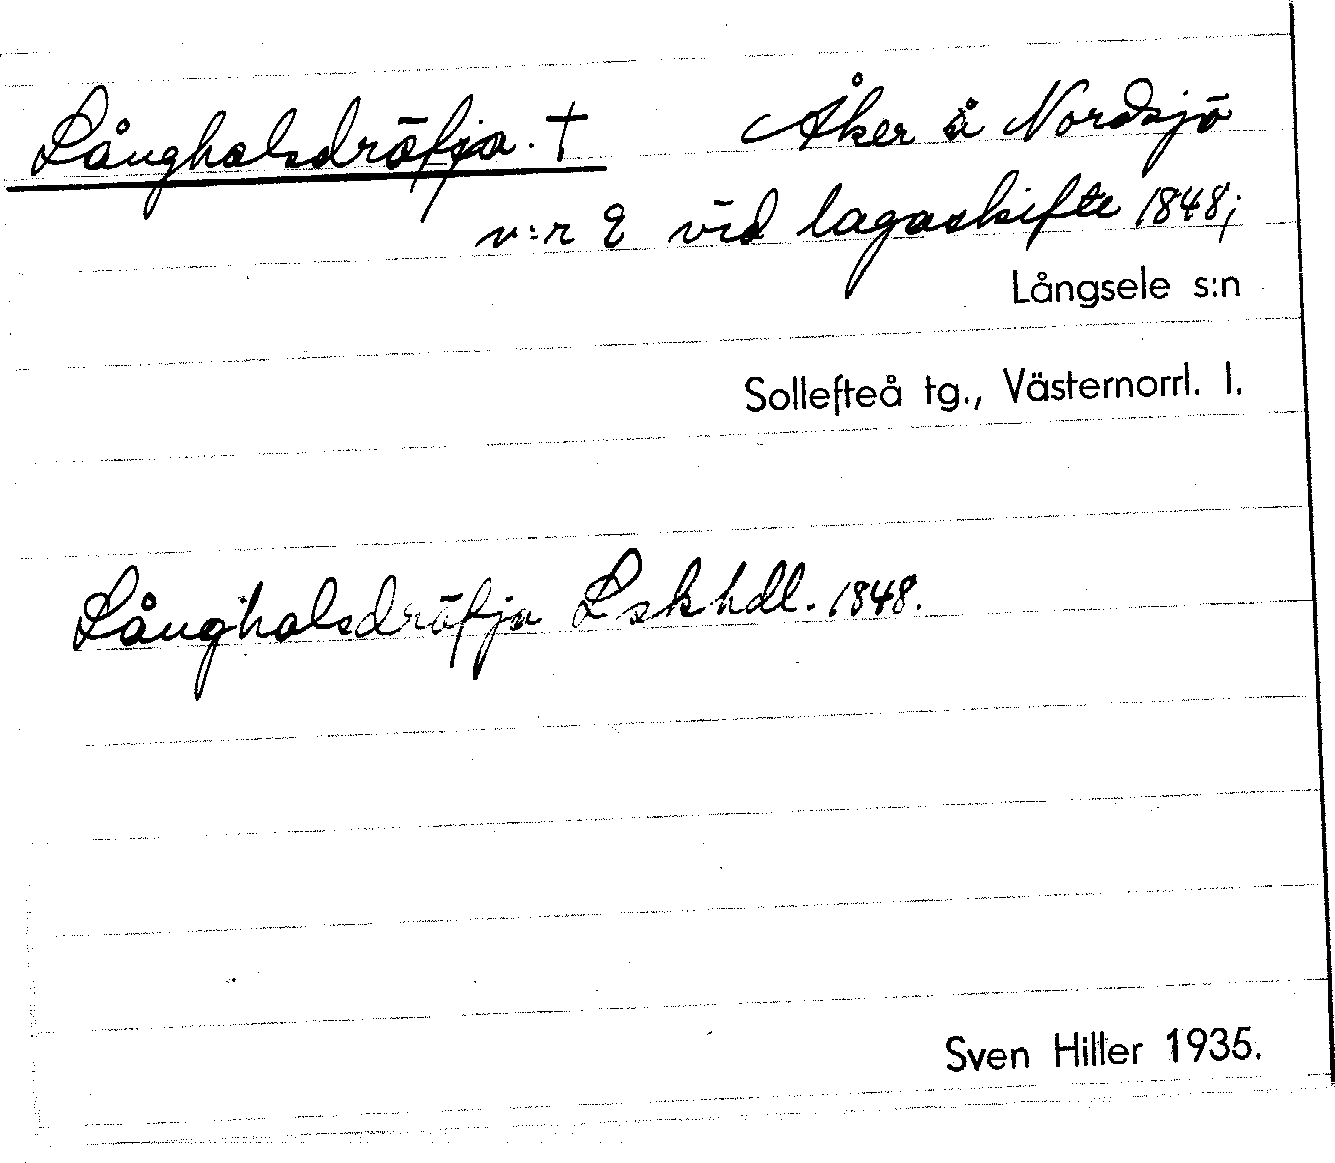 Långhalsdräfja. † Åker å Nordsjö
n:r 2 vid lagaskifte 1848;
Långsele s:n
Sollefteå tg., Västernorrl. l.
Långhalsdräfja Lskhdl. 1848.
Sven Hiller 1935.